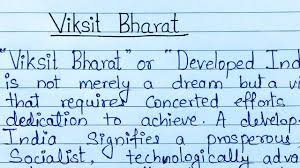 Viksit Bharat
"Viksit Bharat" or "Developed Ind
is not merely a dream but a vi
that requires Concerted efforts
dedication to achieve. A develop
India Signifies a prosperous
Socialist, technologically adv